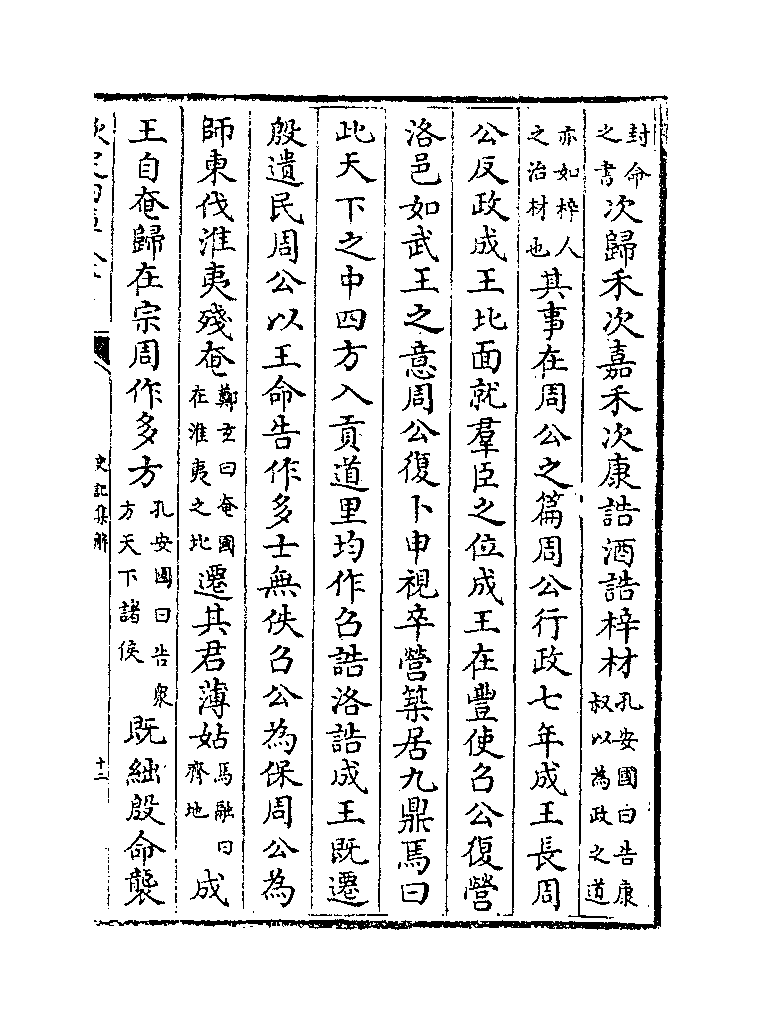 封命之書次歸禾次嘉禾次康誥酒誥梓材孔安國曰告康叔以為政之道
亦如梓人之治材也其事在周公之篇周公行政七年成王長周
公反政成王北面就羣臣之位成王在豐使召公復營
洛邑如武王之意周公復卜申視卒營築居九鼎焉曰
此天下之中四方入貢道里均作召誥洛誥成王既遷
殷遺民周公以王命告作多士無佚召公為保周公為
師東伐淮夷殘奄鄭玄曰奄國在淮夷之北遷其君薄姑馬融曰齊地成
王自奄歸在宗周作多方孔安國曰告衆方天下諸侯既絀殷命襲
史記集解
十二